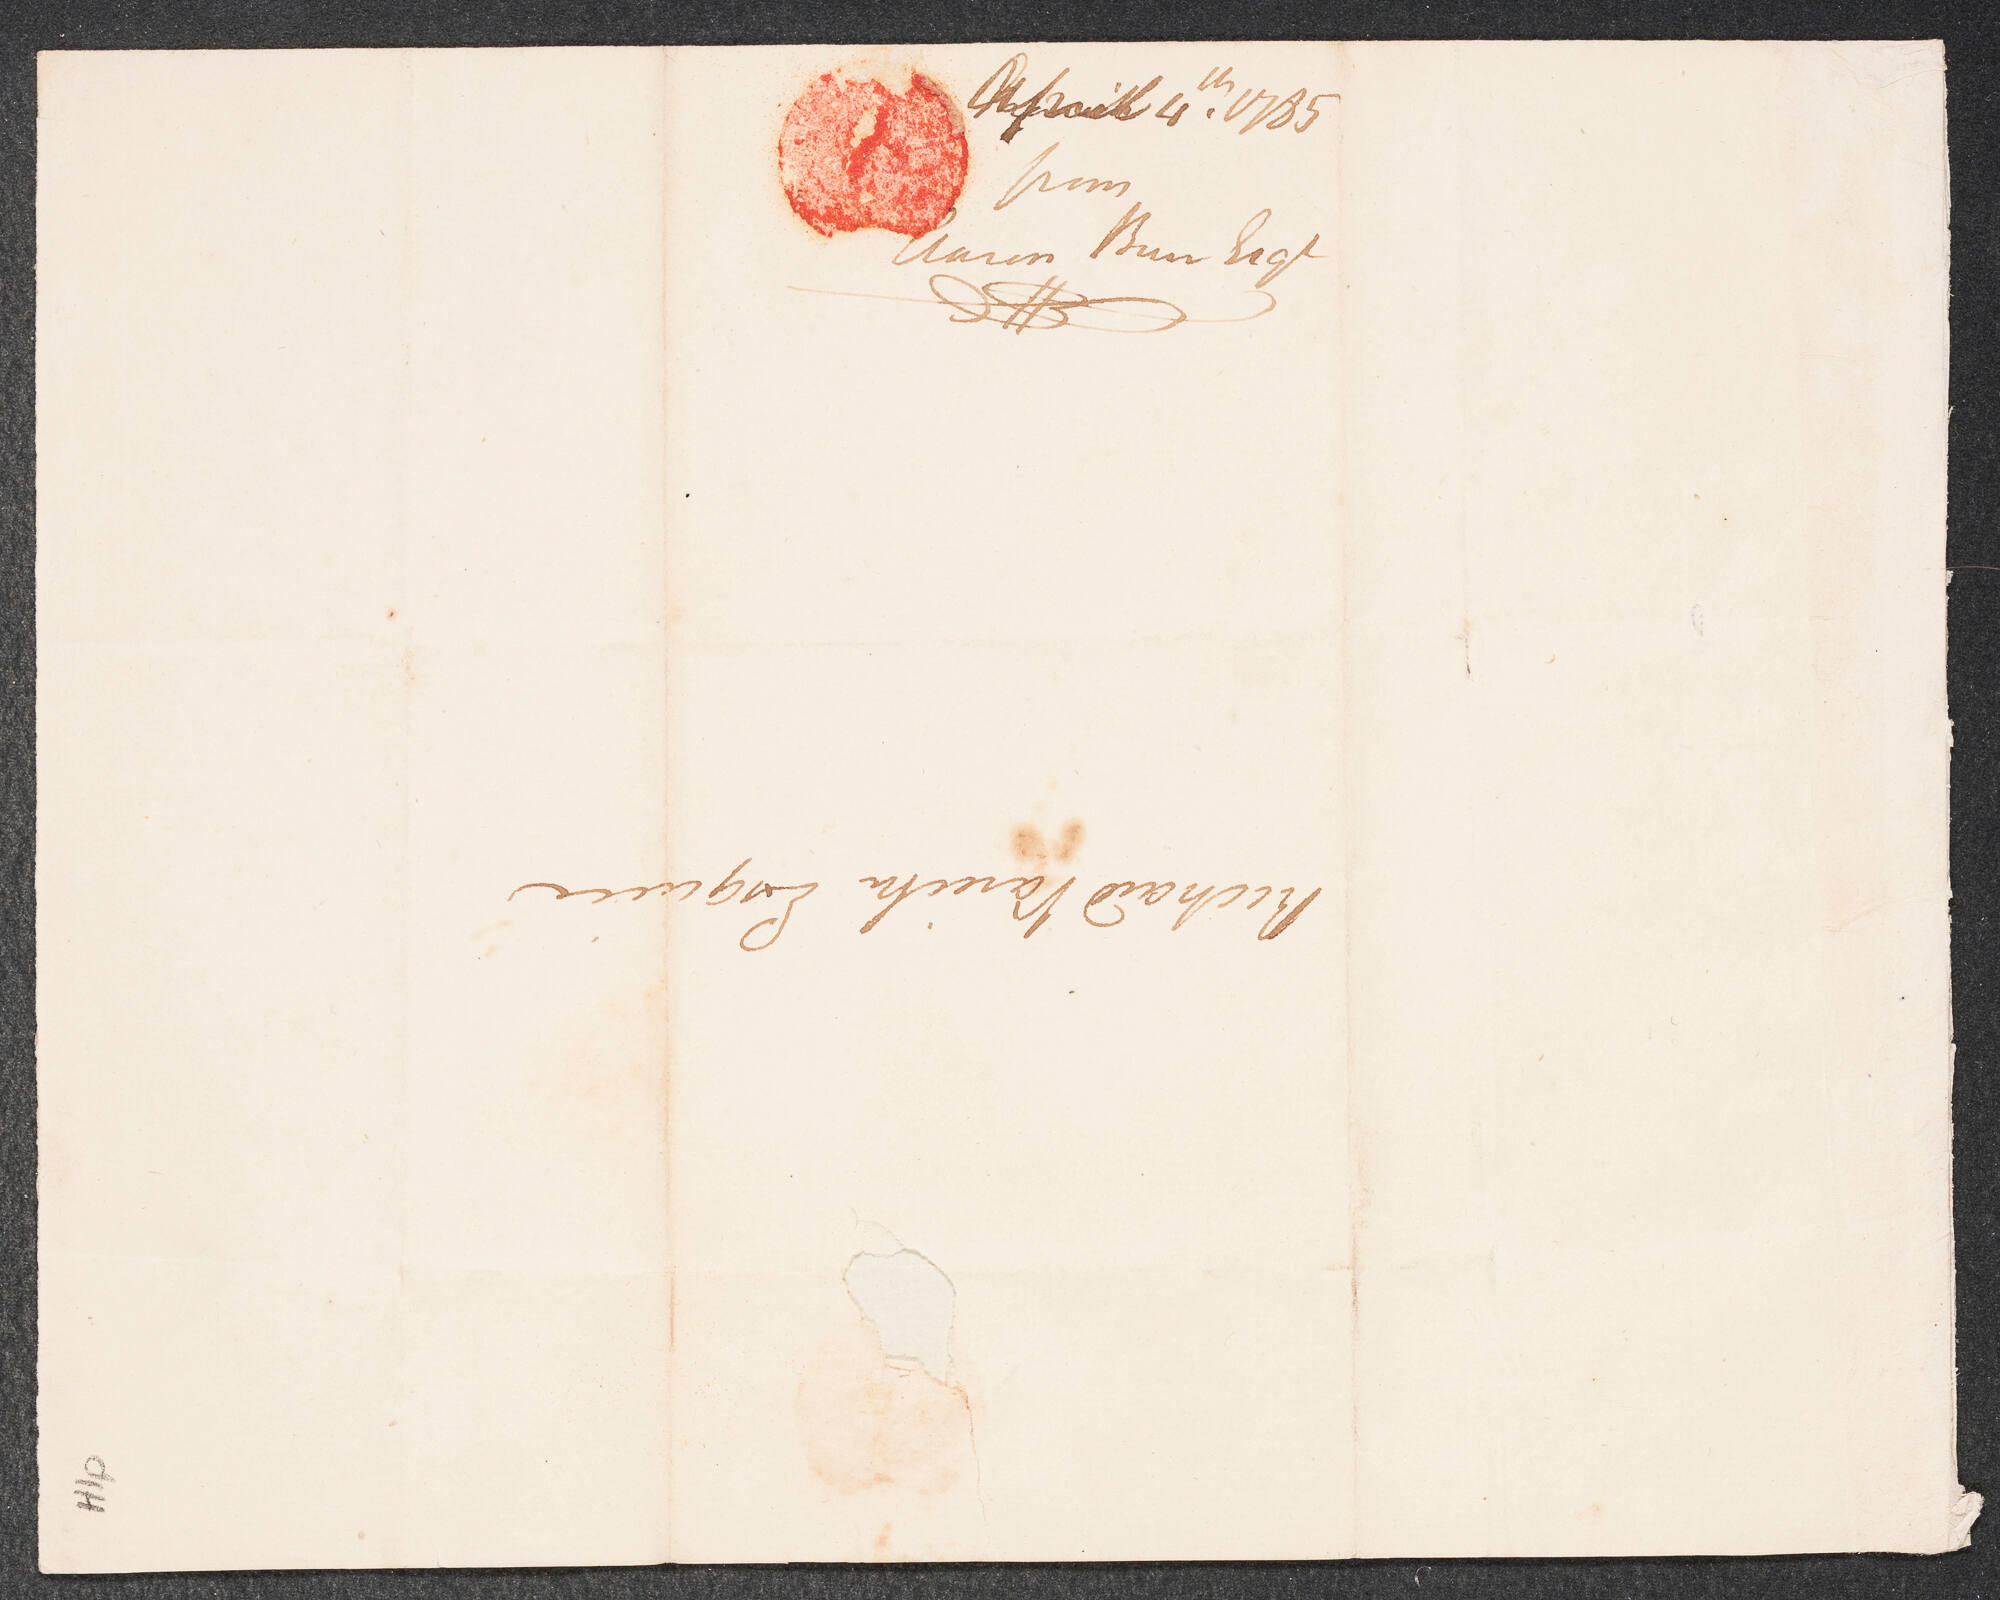 April 4th. 1785
from
Aaron Burr Esqr
Richard Varick Esquire